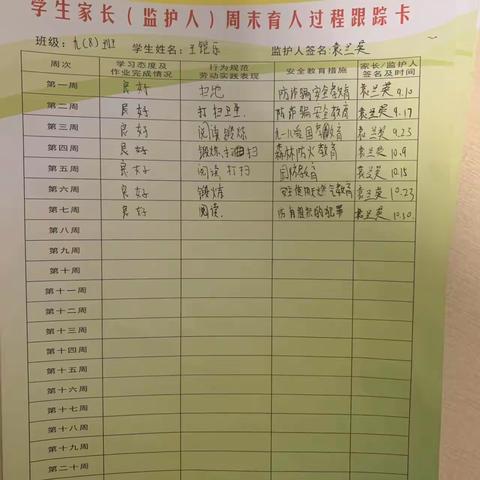 学生家长（监护人）周末育人过程跟踪卡
班级：九(8)班 学生姓名：王锟乐 监护人签名：袁兰英
周次 学习态度及作业完成情况 行为规范劳动实践表现 安全教育措施 家长/监护人签名及时间
第一周 良好 扫地 防诈骗安全教育 袁兰英 9.10
第二周 良好 打扫卫生 防诈骗安全教育 袁兰英 9.17
第三周 良好 阅读 锻炼 九一八爱国教育 袁兰英 9.23
第四周 良好 锻炼,打扫 森林防火教育 袁兰英 10.9
第五周 良好 阅读 打扫 教育 袁兰英 10.15
第六周 良好 锻炼 安全使用燃气教育 袁兰英 10.23
第七周 良好 阅读. 防有组织的犯罪 袁兰英 10.30
第八周
第九周
第十周
第十一周
第十二周
第十三周
第十四周
第十五周
第十六周
第十七周
第十八周
第十九周
第二十周